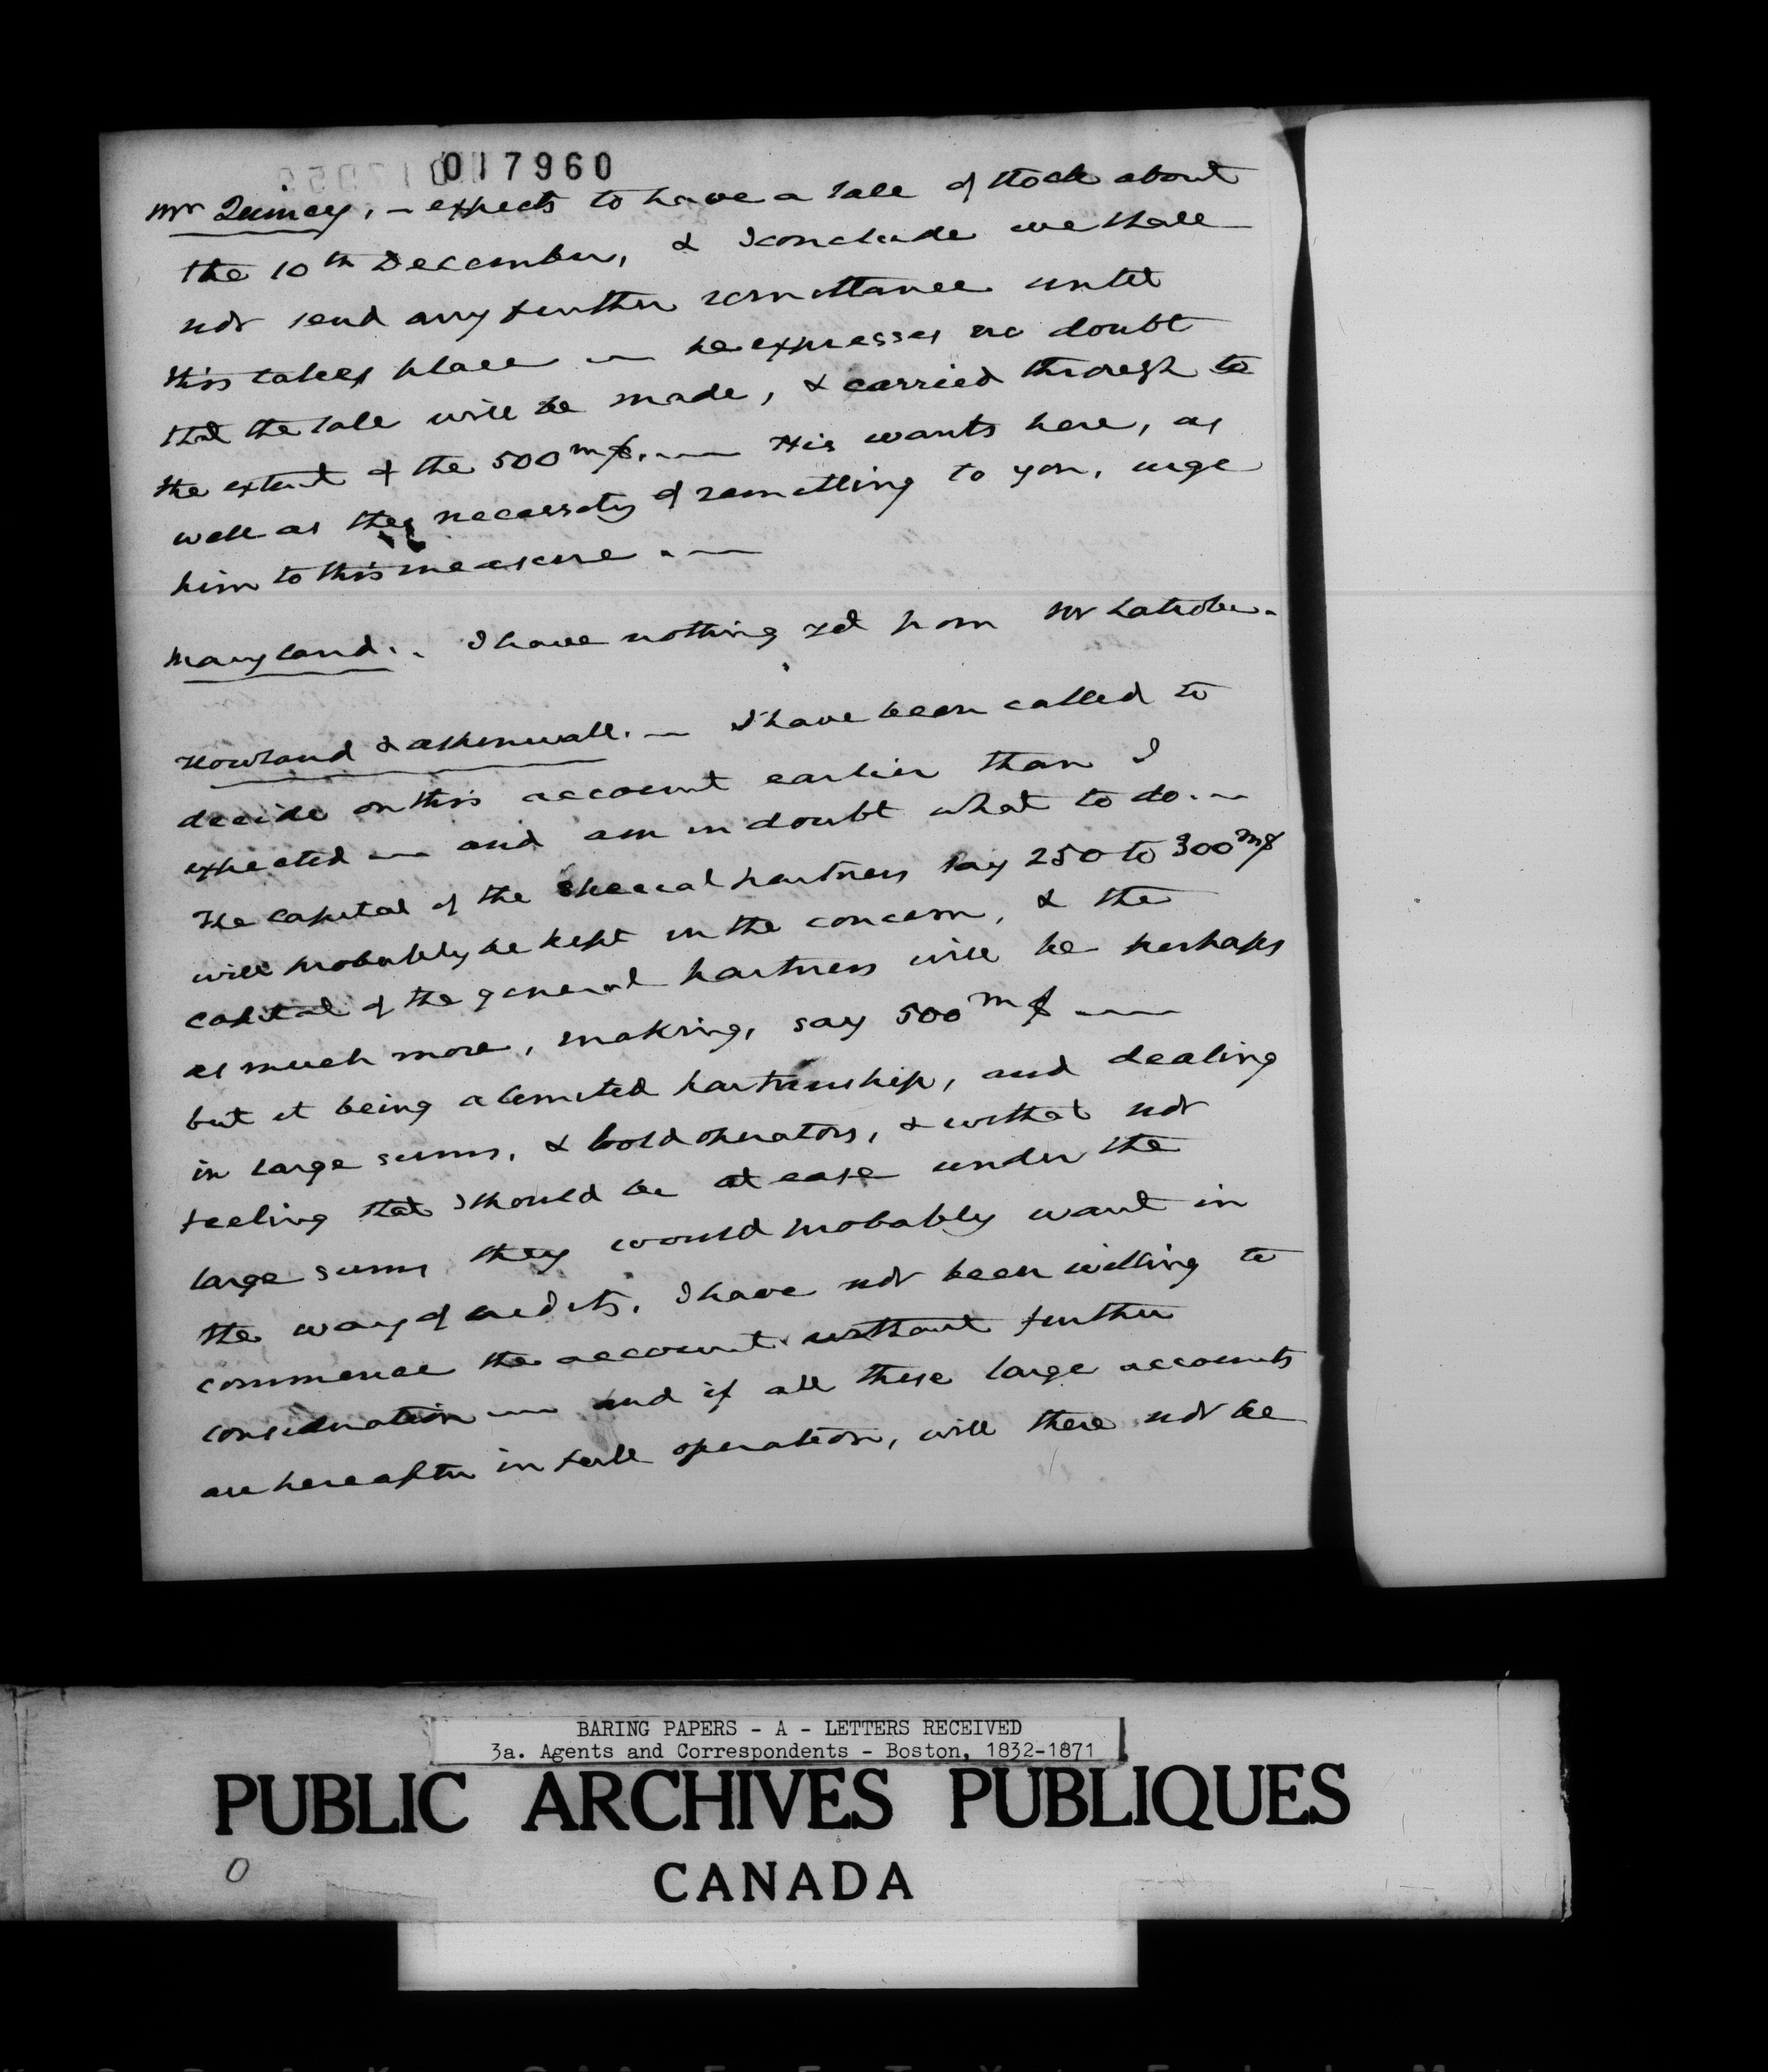 017960
Mr Quincy, – expects to have a sale of stock about
the 10th December, & I conclude we shall
not send any further remittance until
this takes place — he expresses no doubt
that the sale will be made, & carried through to
the extent of the 500 m$. — His wants here, as
well as the necessity of remitting to you, urge
him to this measure. —
Maryland.. I have nothing red from Mr Latrobe.
Howland & Aspinwall. — I have been called to
decide on this account earlier than I
expected — and am in doubt what to do. —
The capital of the special partners say 250 to 300 m$
will probably be kept in the concern, & the
capital of the general partners will be perhaps
as much more, making, say 500 m $ —
but it being a limited partnership, and dealing
in large sums, & bold operators, & withal not
feeling that I should be at ease under the
large sums they would probably want in
the way of credits, I have not been willing to
commence the account without further
consideration — and if all these large accounts
are hereafter in full operation, will there not be
BARING PAPERS - A - LETTERS RECEIVED
3a. Agents and Correspondents - Boston, 1832-1871
PUBLIC ARCHIVES PUBLIQUES
CANADA